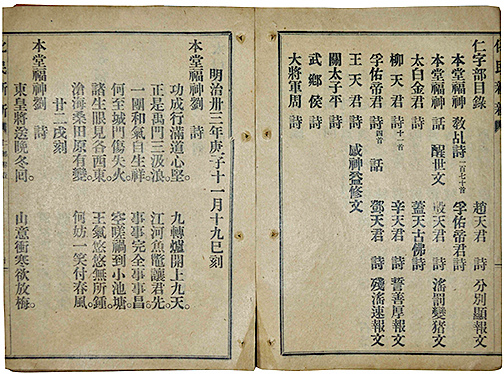 仁字部目錄
本堂福神 敎乩詩一百七十首 趙天君 詩 分別顯報文
本堂福神 話 醒世文 孚佑帝君 詩
太白金君 詩 殷天君 詩 滛罰變猪文
柳天君 詩十一首 蓋天古佛 詩
孚佑帝君 詩四首 話 辛天君 詩 誓善厚報文
王天君 詩 感神益修文 鄧天君 詩 殘滛速報文
關太子平 詩
武鄉侯 詩
大將軍周 詩
明治卅三年庚子十一月十九巳刻
本堂福神劉 詩
功成行滿道心堅。 九轉爐開上九天。
正是禹門三汲浪。 江河魚鼈讓君先
一團和氣自生祥 事事完全事事昌。
何至城門傷失火。 空嗟禍到小池塘
諸生眼見各西東 王氣悠悠無所鍾。
滄海桑田原有變。 何妨一笑付春風
廿二戌刻
本堂福神劉 詩
東皇將送晚冬回。 山意衝寒欲放梅。